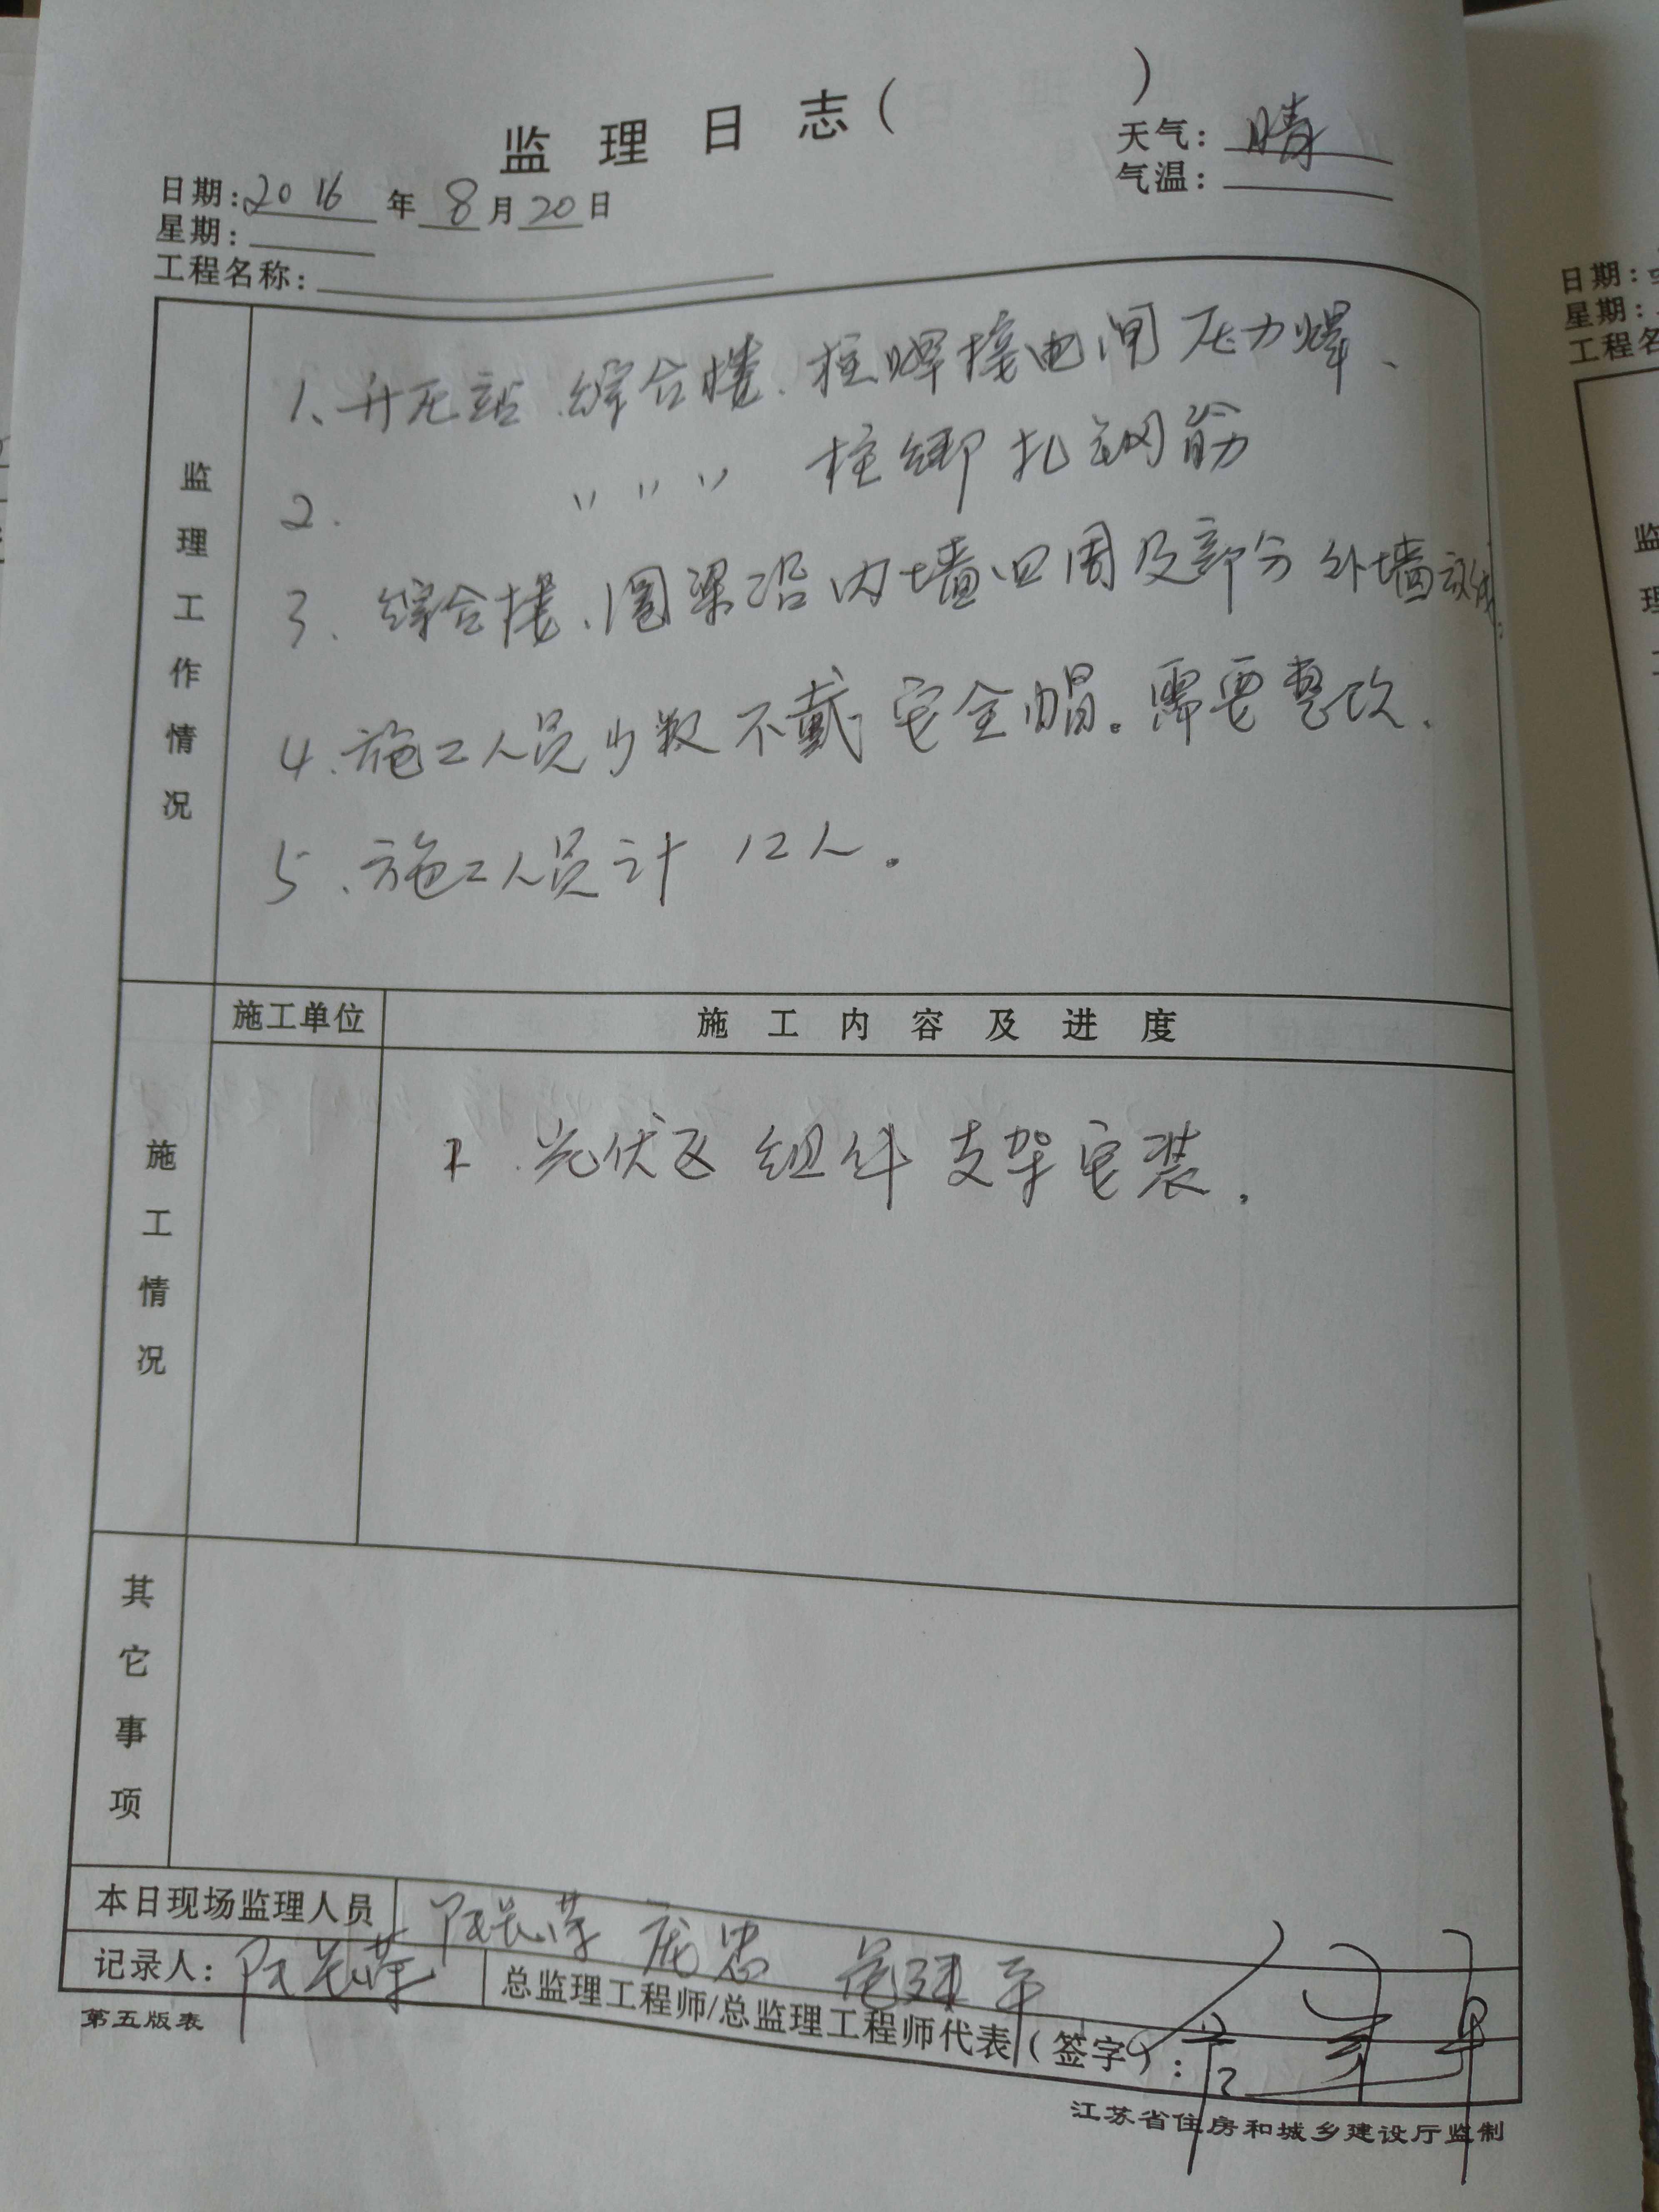 监理日志( )
天气: 晴
日期: 2016 年 8 月 20 日
气温:
星期:
工程名称:
监理工作情况
1、升压站 综合楼、柱焊接电闸压力焊、
2. 〃 〃 〃 柱绑扎钢筋
3. 综合楼、圈梁沿内墙四周及部分外墙
4. 施工人员少数不戴安全帽。需要整改.
5、施工人员计 12人。
施工单位 施工内容及进度
施工情况
1. 光伏区组件支架安装.
其它事项
本日现场监理人员
记录人:
总监理工程师/总监理工程师代表(签字):
第五版表
江苏省住房和城乡建设厅监制
日期:
星期:
工程名
监
理